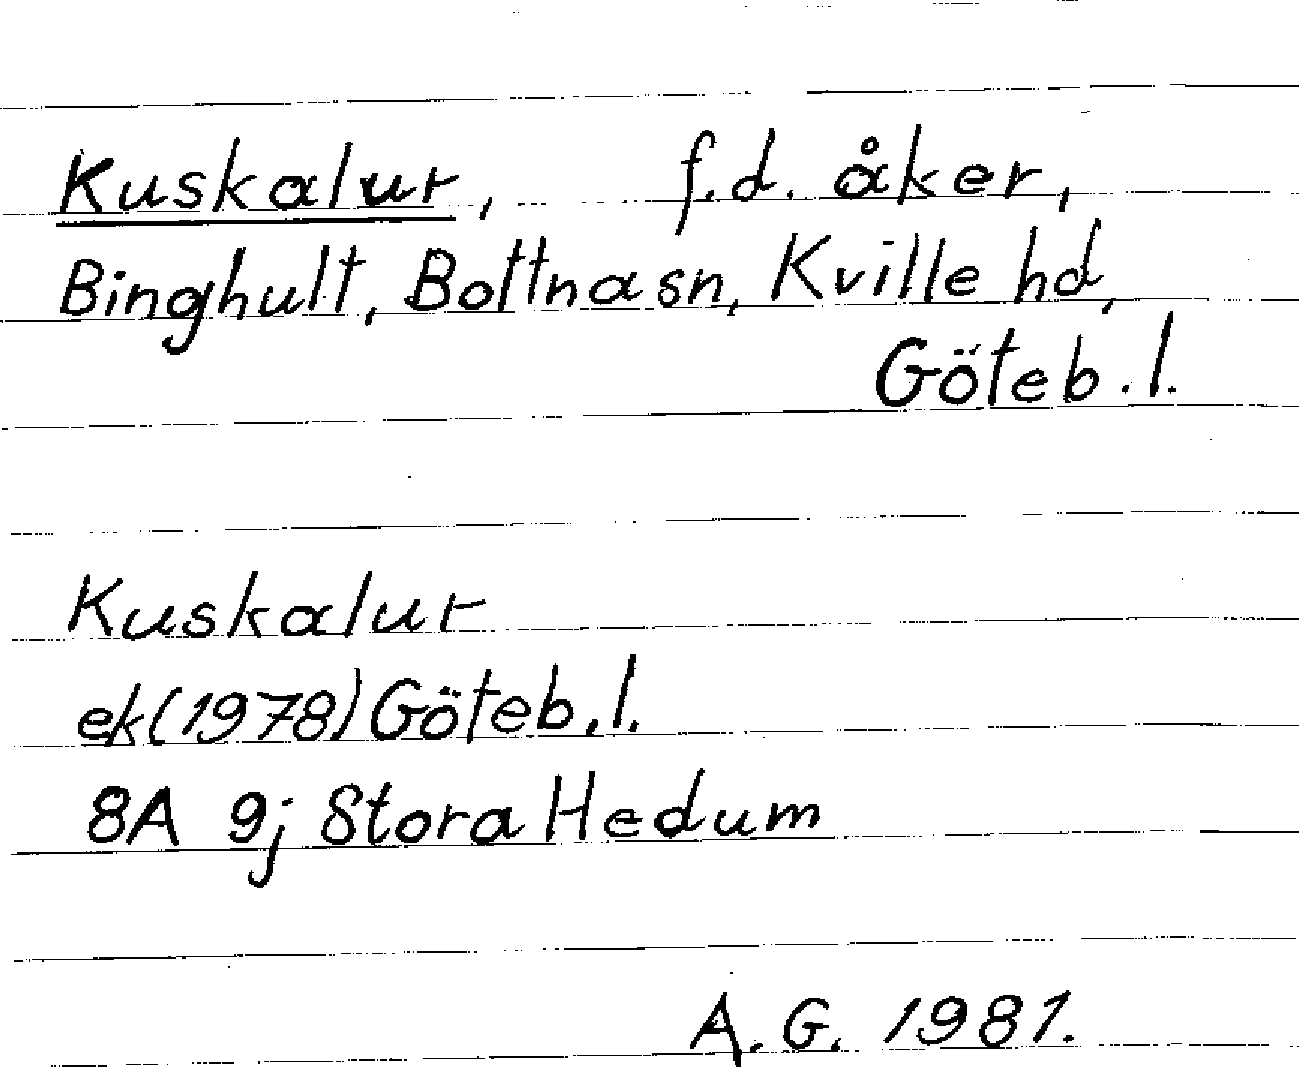 Kuskalur, f.d. åker,
Binghult, Bottna sn, Kville hd,
Göteb. l.
Kuskalur
ek (1978) Göteb. l.
8A 9j Stora Hedum
A. G. 1981.